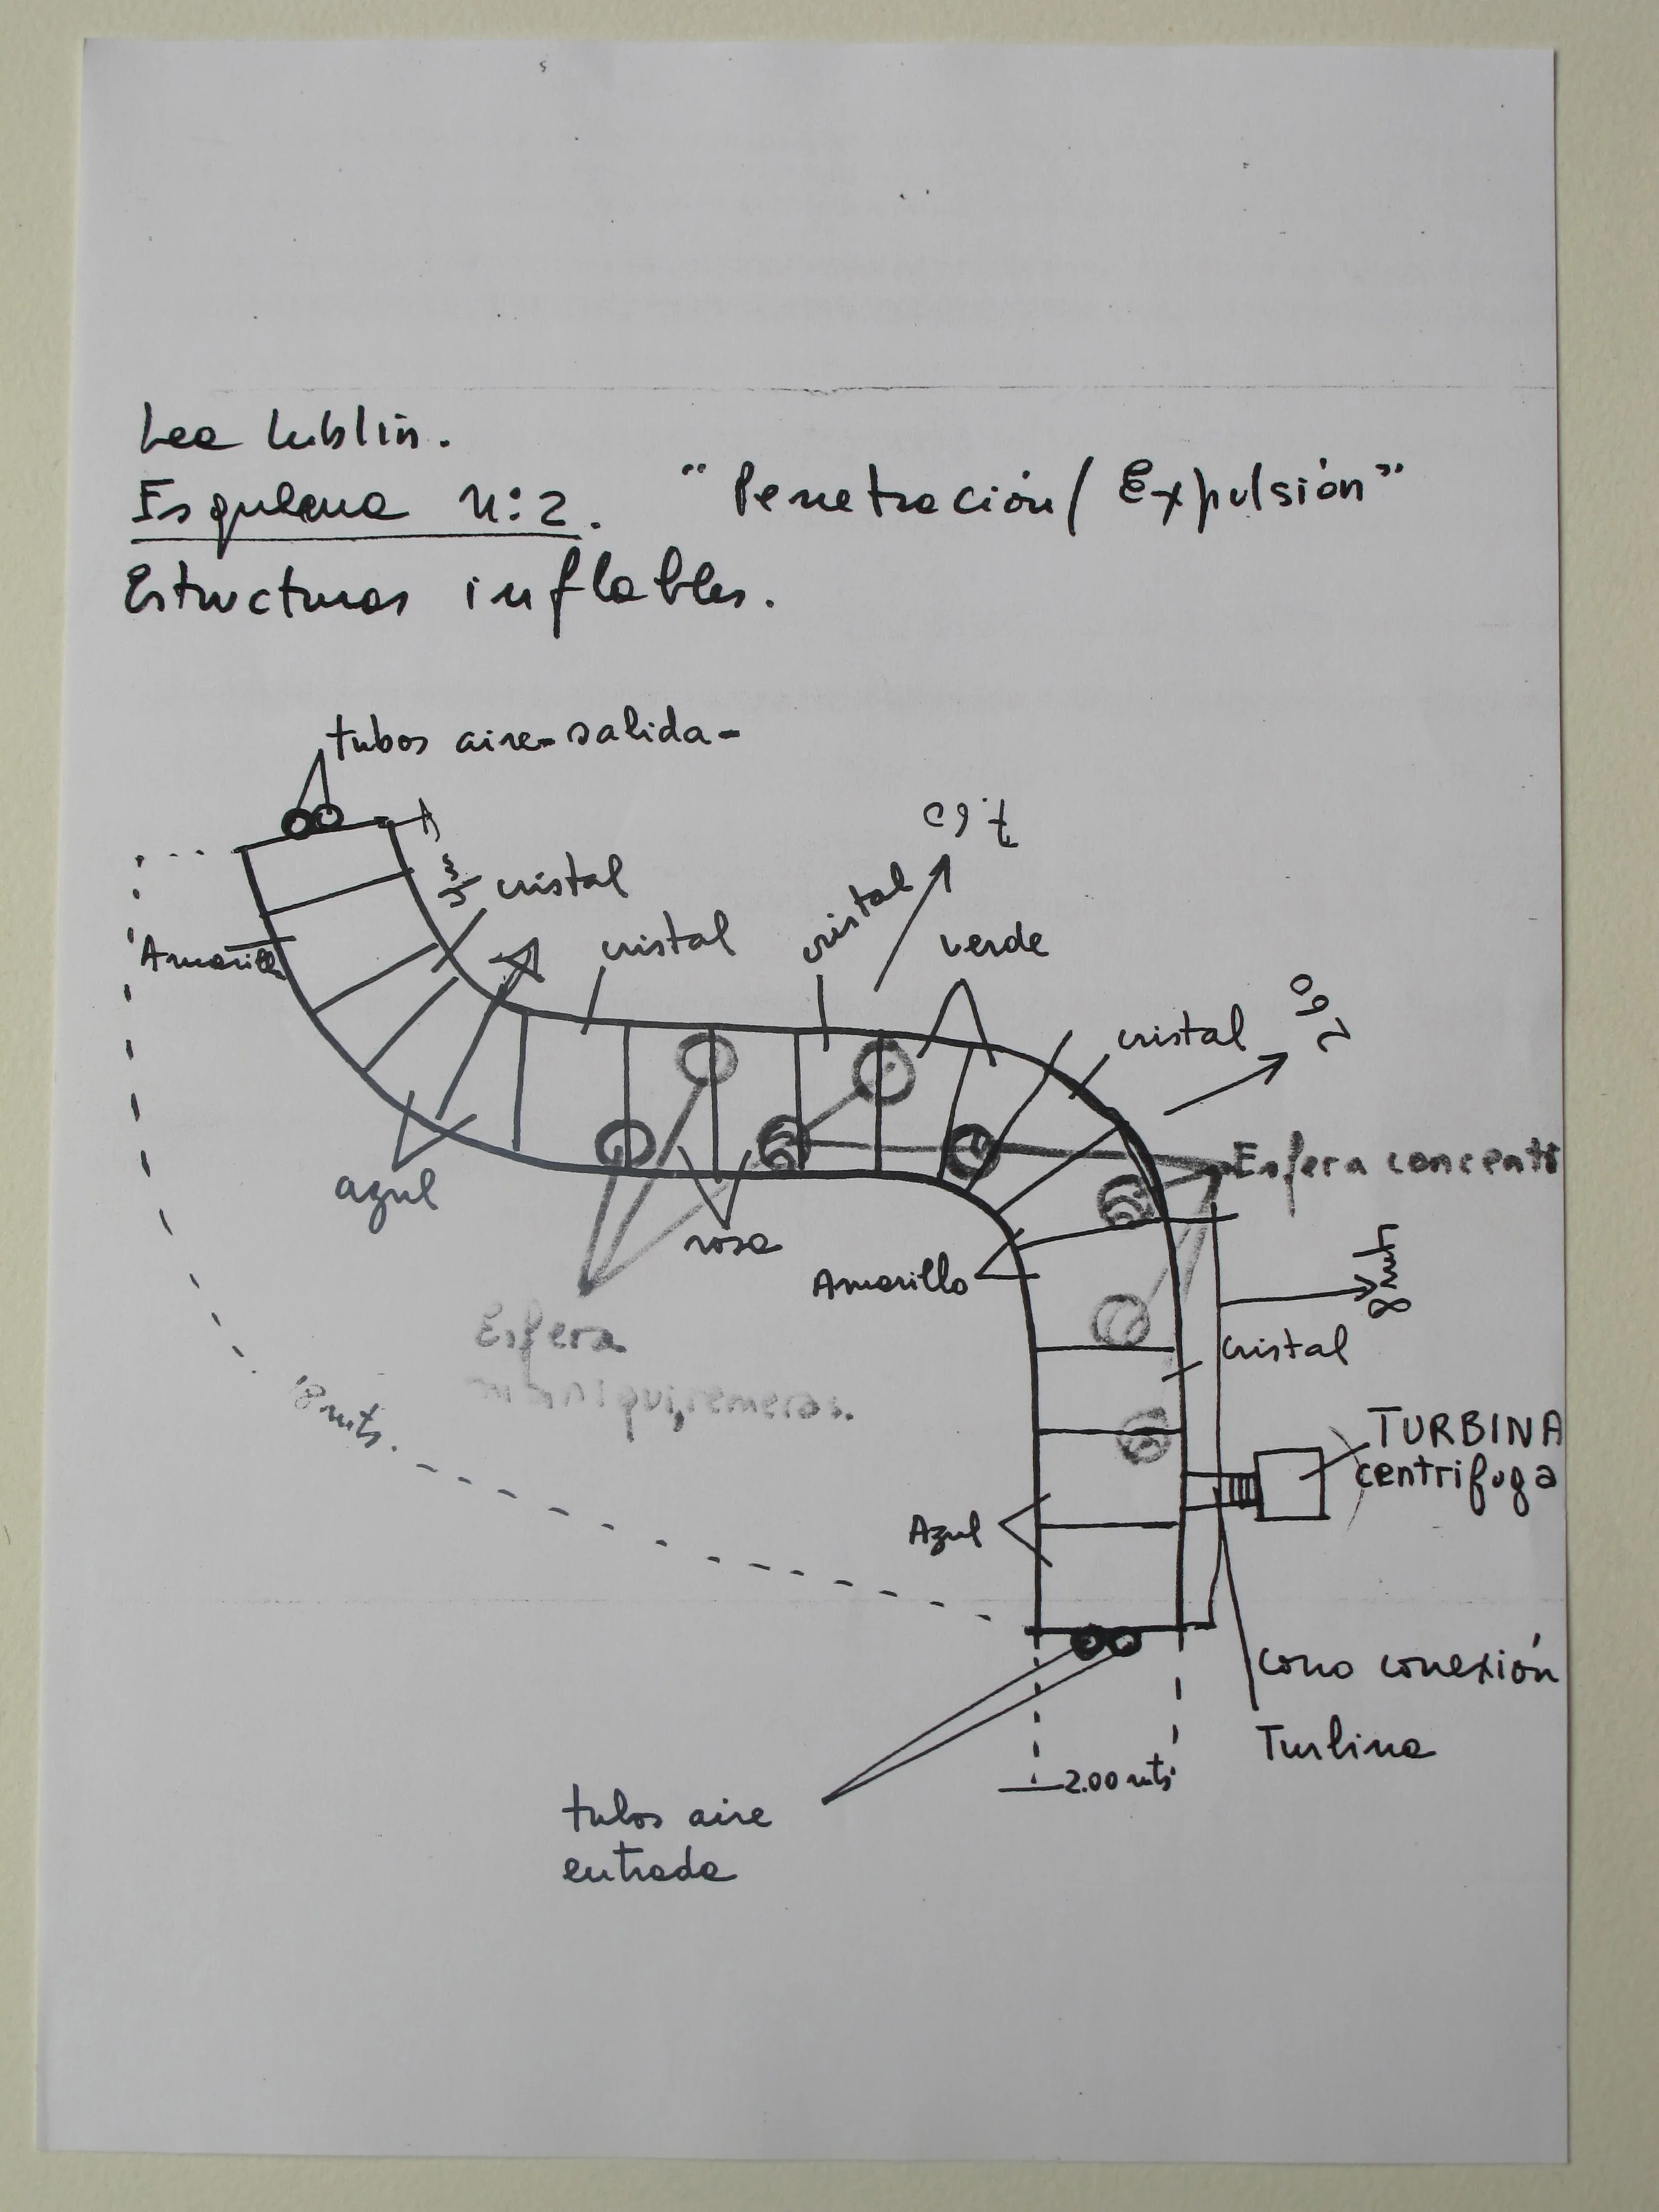 Lea Lublin.
Esquema N:2. "Penetración / Expulsión"
Estructuras inflables.
tubos aire-salida-
7.60
cristal
cristal
cristal
verde
Amarillo
cristal
7.60
azul
rosa
Esfera concent
Amarillo
8 mts
Esfera
cristal
mts.
TURBINA
centrifuga
Azul
cono conexión
Turbina
2.00 mts
tubos aire
entrada